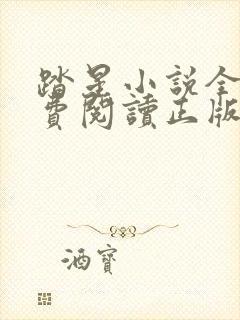 踏星小説全
費閱讀正版
酒寶